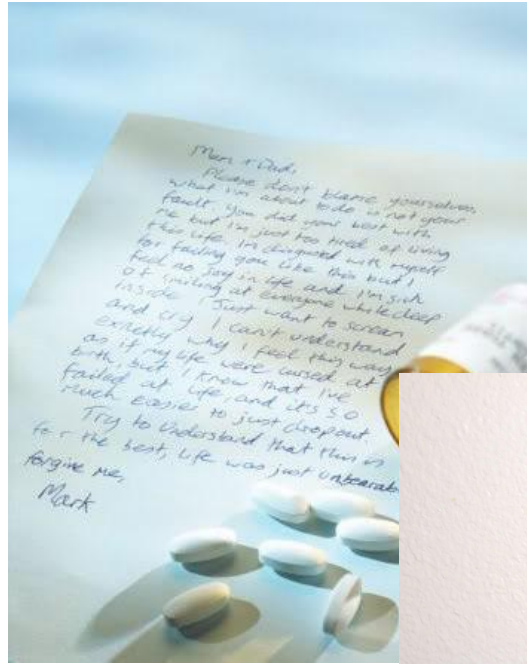 Mom + Dad,
Please don't blame yourselves,
what I'm about to do is not your
fault. You did your best with
me but I'm just too tired of living
this life. I'm disgusted with myself
for failing you like this but I
feel no joy in life and I'm sick
of smiling at everyone while deep
inside I just want to scream
and cry. I can't understand
exactly why I feel this way
as if my life were cursed at
birth, but I know that I've
failed at life, and its so
much easier to just drop out.
Try to understand that this is
for the best, life was just
forgive me,
Mark